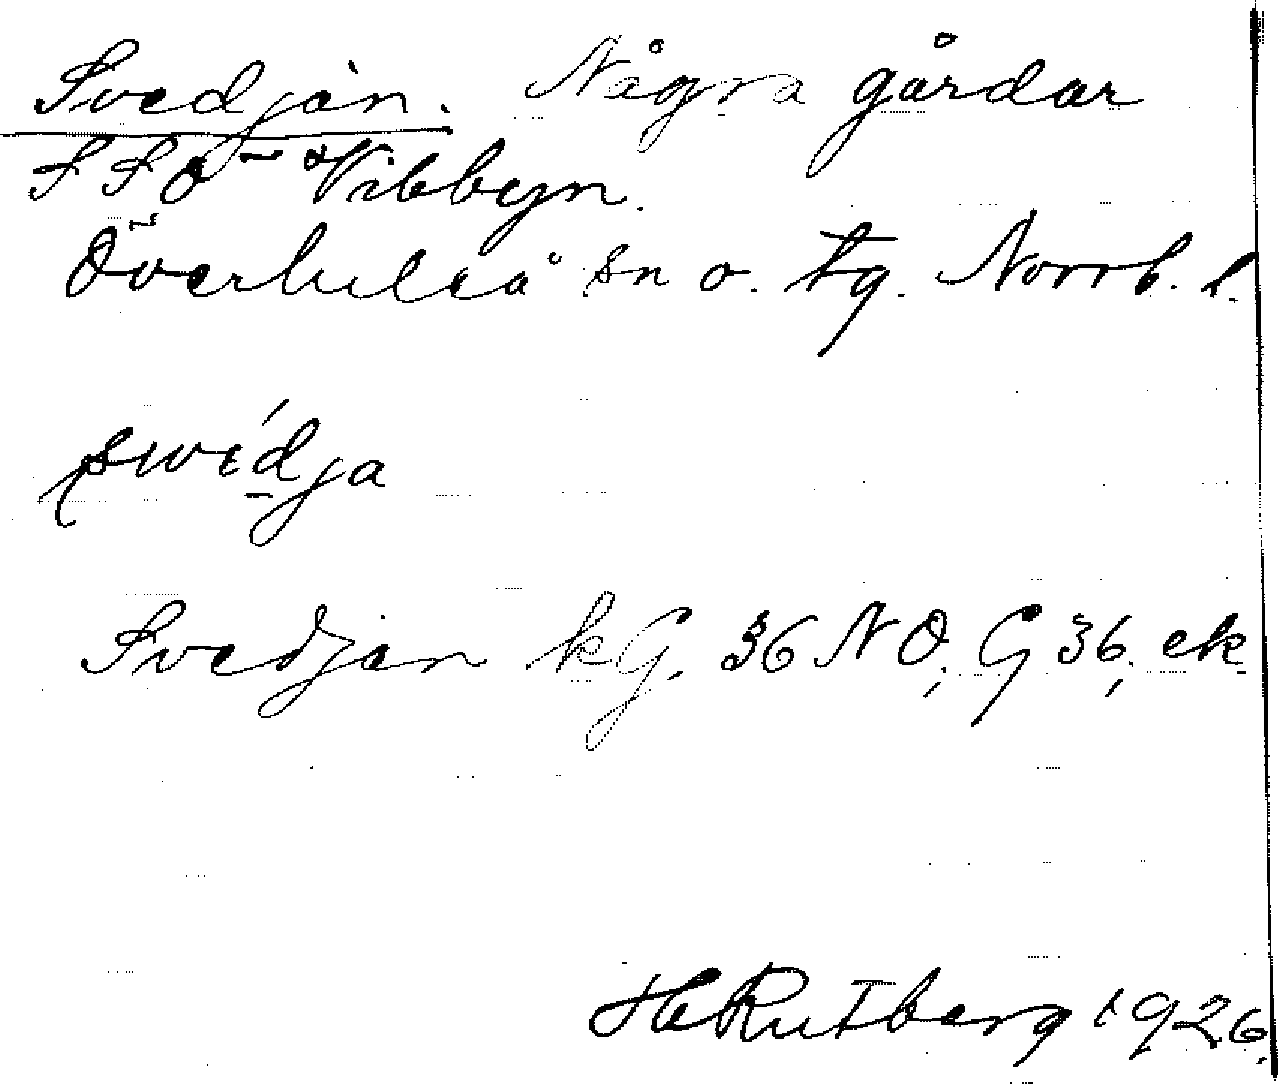 Svedjan. Några gårdar
SSÖ Vibbyn.
Överluleå sn o. tg. Norrb. l.
swédja
Svedjan kG. 36 NÖ, G 36, ek
HRutberg 1926.